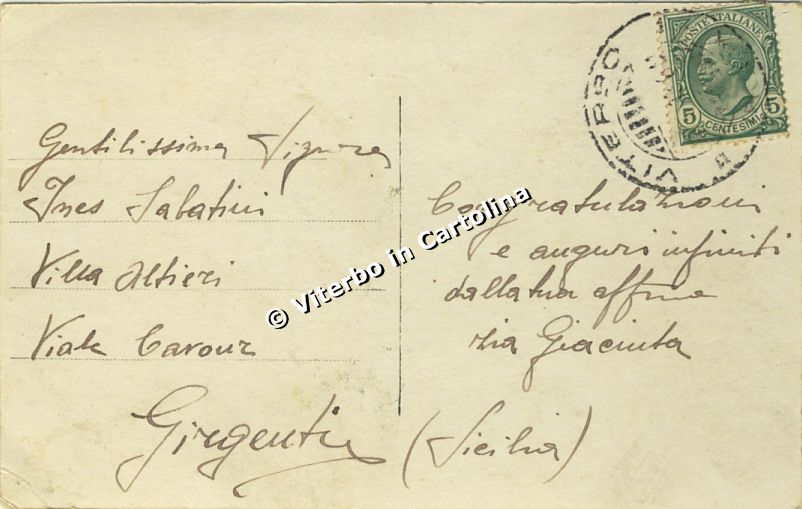 Gentilissima Signora
Ines Sabatini
Villa Altieri
Viale Cavour
Girgenti (Sicilia)
Congratulazioni
e auguri infiniti
dalla tua affima
zia Giacinta
POSTE ITALIANE
5 CENTESIMI 5
VITERBO
© Viterbo in Cartolina